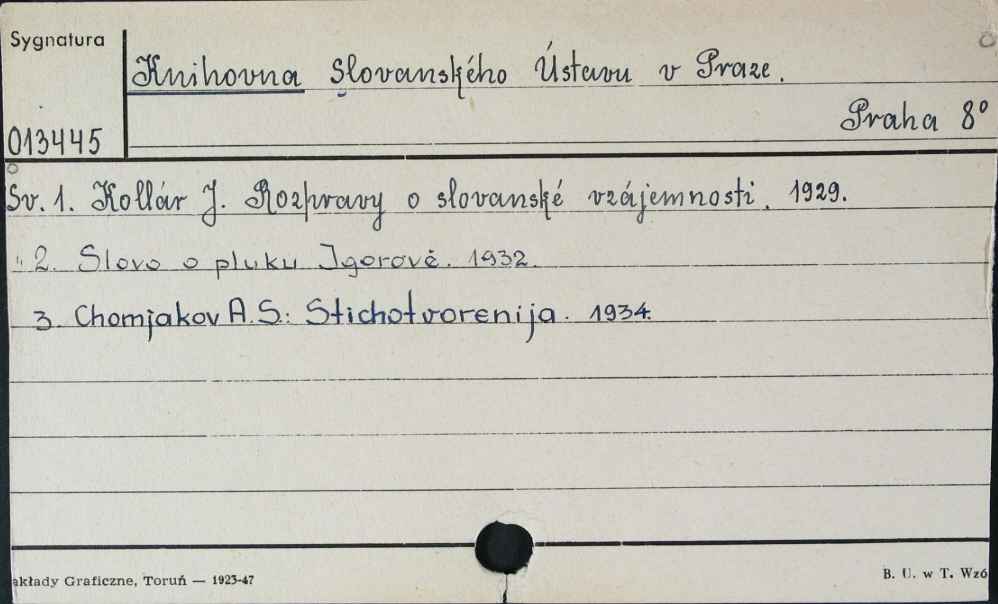 Sygnatura
Knihovna Slovanského Ústavu v Praze.
Praha 8°
013445
Sv. 1. Kollár J. Rozpravy o slovanské vzájemnosti. 1929.
" 2. Slovo o pluku Igorově. 1932.
3. Chomjakov A.S.: Stichotvorenija. 1934.
akłady Graficzne, Toruń — 1923-47
B. U. w T. Wzó